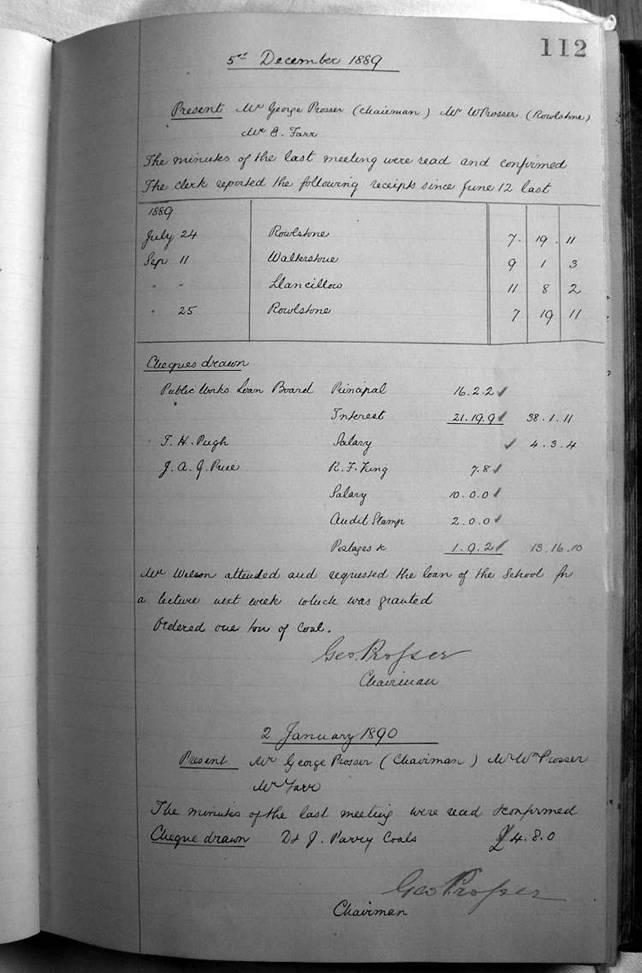 112
5th December 1889
Present Mr George Prosser (Chairman) Mr W Prosser (Rowlstone)
Mr E. Farr
The minutes of the last meeting were read and confirmed
The clerk reported the following receipts since June 12 last
1889
July 24 Rowlstone 7. 19. 11
Sep 11 Walterstone 9 1 3
" " Llancillow 11 8 2
" 25 Rowlstone 7 19 11
Cheques drawn
Public Works Loan Board Principal 16.2.2 ✓
Interest 21.19.9 ✓ 38.1.11
T. H. Pugh Salary ✓ 4.3.4
J. A. G. Price R. F. King 7.8 ✓
Salary 10.0.0 ✓
Audit Stamp 2.0.0 ✓
Postages &c 1.9.2 ✓ 13.16.10
Mr Wilson attended and requested the loan of the School for
a lecture next week which was granted
Ordered one ton of Coal.
Geo. Prosser
Chairman
2 January 1890
Present Mr George Prosser (Chairman) Mr Wm Prosser
Mr Farr
The minutes of the last meeting were read & confirmed
Cheque drawn J. Parry Coals £4.8.0
Geo Prosser
Chairman